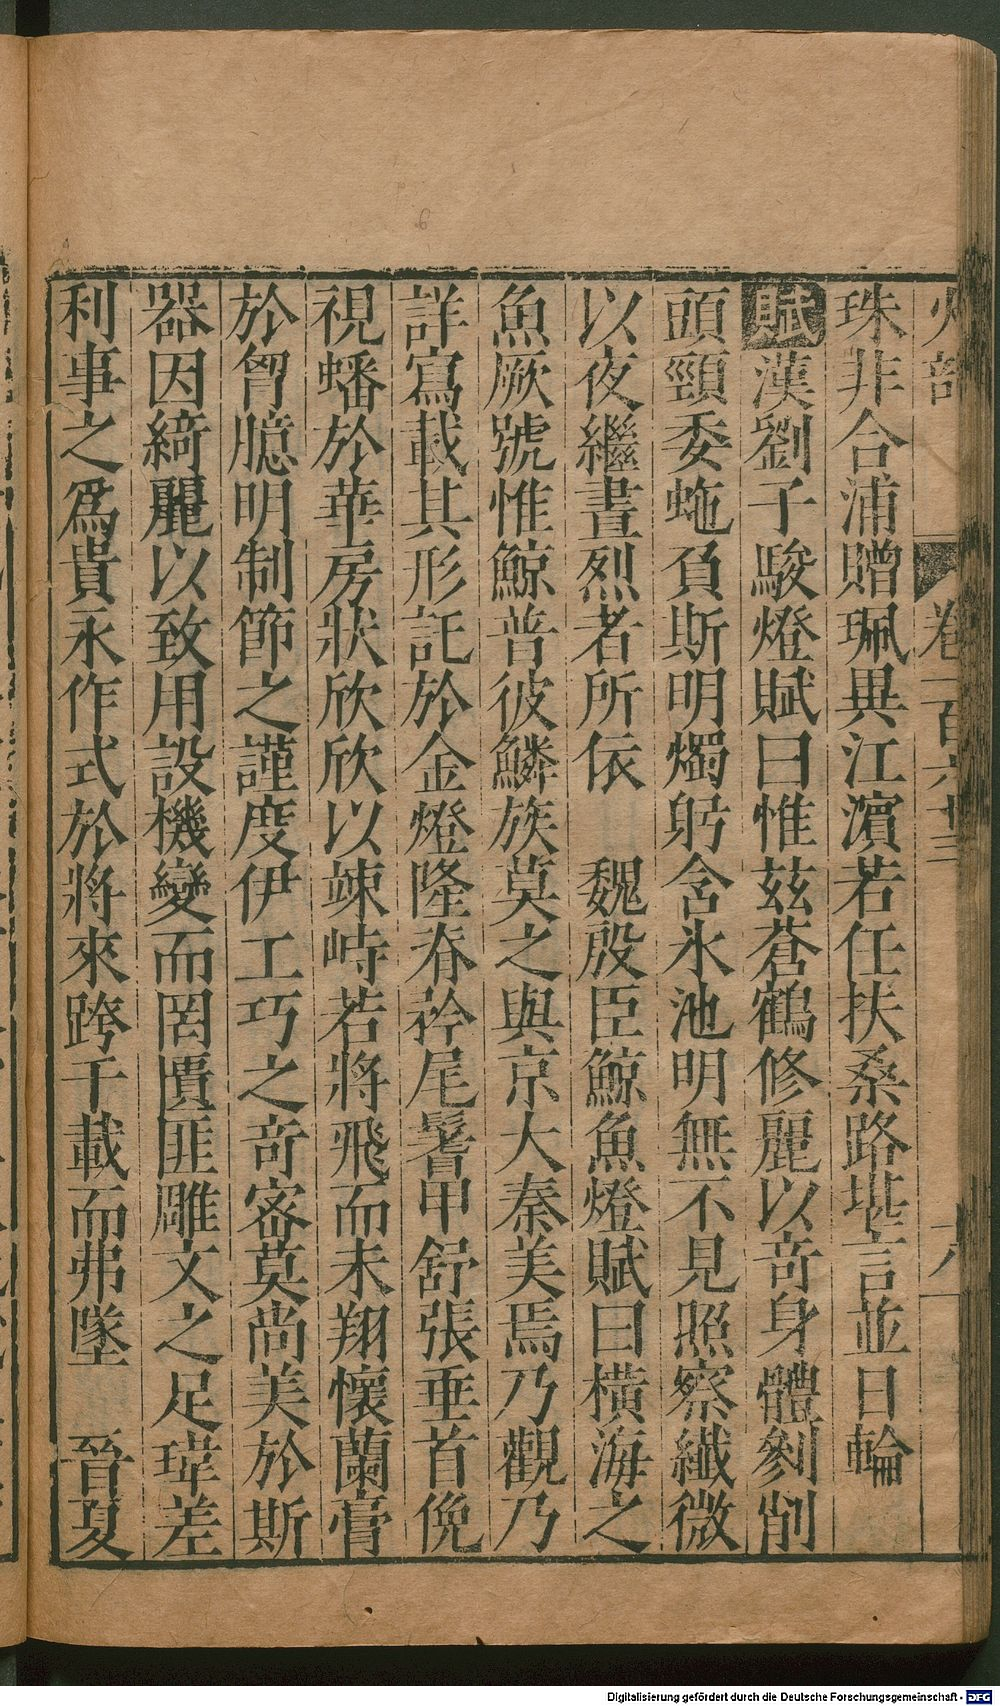 火部 卷一百六十三 十八
珠非合浦贈珮異江濵若任扶桑路堪言並日輪
賦漢劉子駿燈賦曰惟茲蒼鶴修麗以竒身體剡削
頭頸委虵負斯明燭躬含氷池明無不見照察纎微
以夜繼晝烈者所依 魏殷臣鯨魚燈賦曰橫海之
魚厥號惟鯨普彼鱗族莫之與京大秦美焉乃觀乃
詳寫載其形託於金燈隆脊矜尾鬐甲舒張垂首俛
視蟠於華房狀欣欣以竦峙若將飛而未翔懷蘭膏
於胷臆明制節之謹度伊工巧之竒密莫尚美於斯
器因綺麗以致用設機變而罔匱匪雕文之足瑋差
利事之爲貴永作式於將來跨千載而弗墜 晉夏
Digitalisierung gefördert durch die Deutsche Forschungsgemeinschaft - DFG